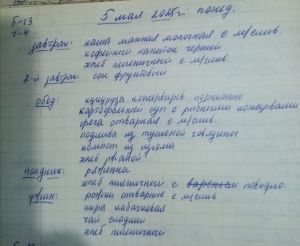 б-13 5 мая 2025г. понед.
г-4
завтрак: каша манная молочная с м/слив.
кофейный напиток черный
хлеб пшеничный с м/слив.
2-й завтрак: сок фруктовый
обед: кукуруза консервиров. порционно
картофельный суп с рыбными консервами
греча отварная с м/слив.
подлива из тушеной говядины
компот из изюма
хлеб ржаной
полдник: ряженка
хлеб пшеничный с повидло.
ужин: рожки отварные с м/слив
икра кабачковая
чай сладкий
хлеб пшеничный